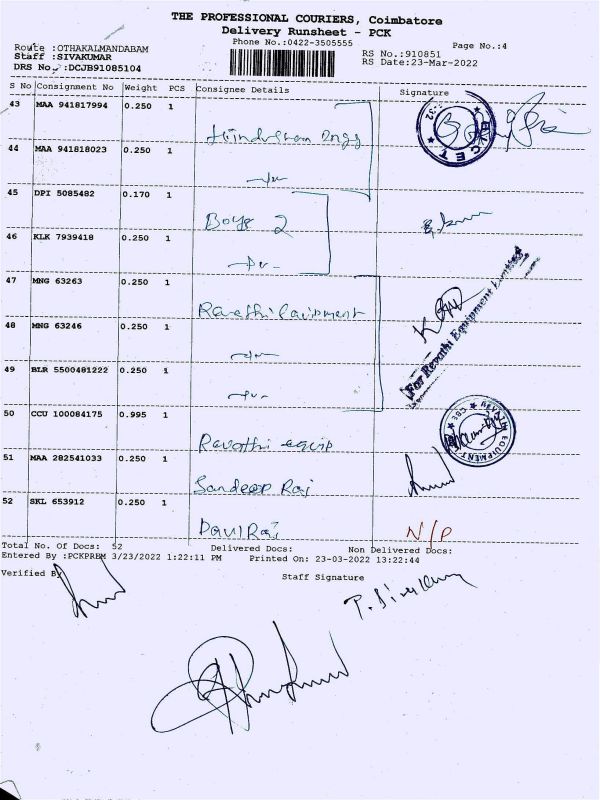 THE PROFESSIONAL COURIERS, Coimbatore
Delivery Runsheet - PCK
Phone No.:0422-3505555
Page No.:4
Route :OTHAKALMANDABAM
RS No.:910851
Staff :SIVAKUMAR
RS Date:23-Mar-2022
DRS No. :DCJB91085104
S No Consignment No Weight PCS Consignee Details Signature
43 MAA 941817994 0.250 1
44 MAA 941818023 0.250 1
45 DPI 5085482 0.170 1
Boys 2
46 KLK 7939418 0.250 1
47 MNG 63263 0.250 1
48 MNG 63246 0.250 1
For Revathi Equipment Limited
49 BLR 5500481222 0.250 1
50 CCU 100084175 0.995 1
Revathi equip
51 MAA 282541033 0.250 1
Sandeep Raj
52 SKL 653912 0.250 1
Paul Raj N/P
Total No. Of Docs: 52 Delivered Docs: Non Delivered Docs:
Entered By :PCKPREM 3/23/2022 1:22:11 PM Printed On: 23-03-2022 13:22:44
Verified By Staff Signature